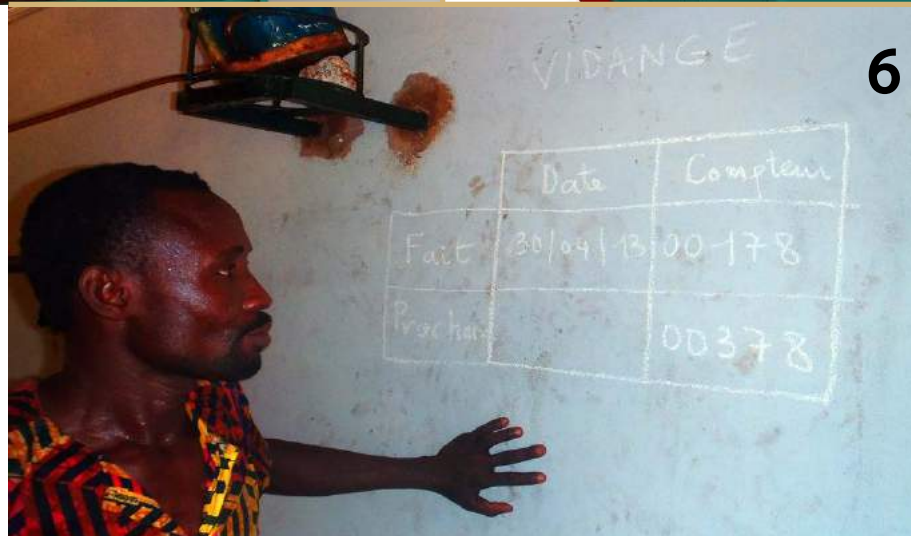 6
VIDANGE
Date Compteur
Fait 30/04/13 00178
Prochain 00378